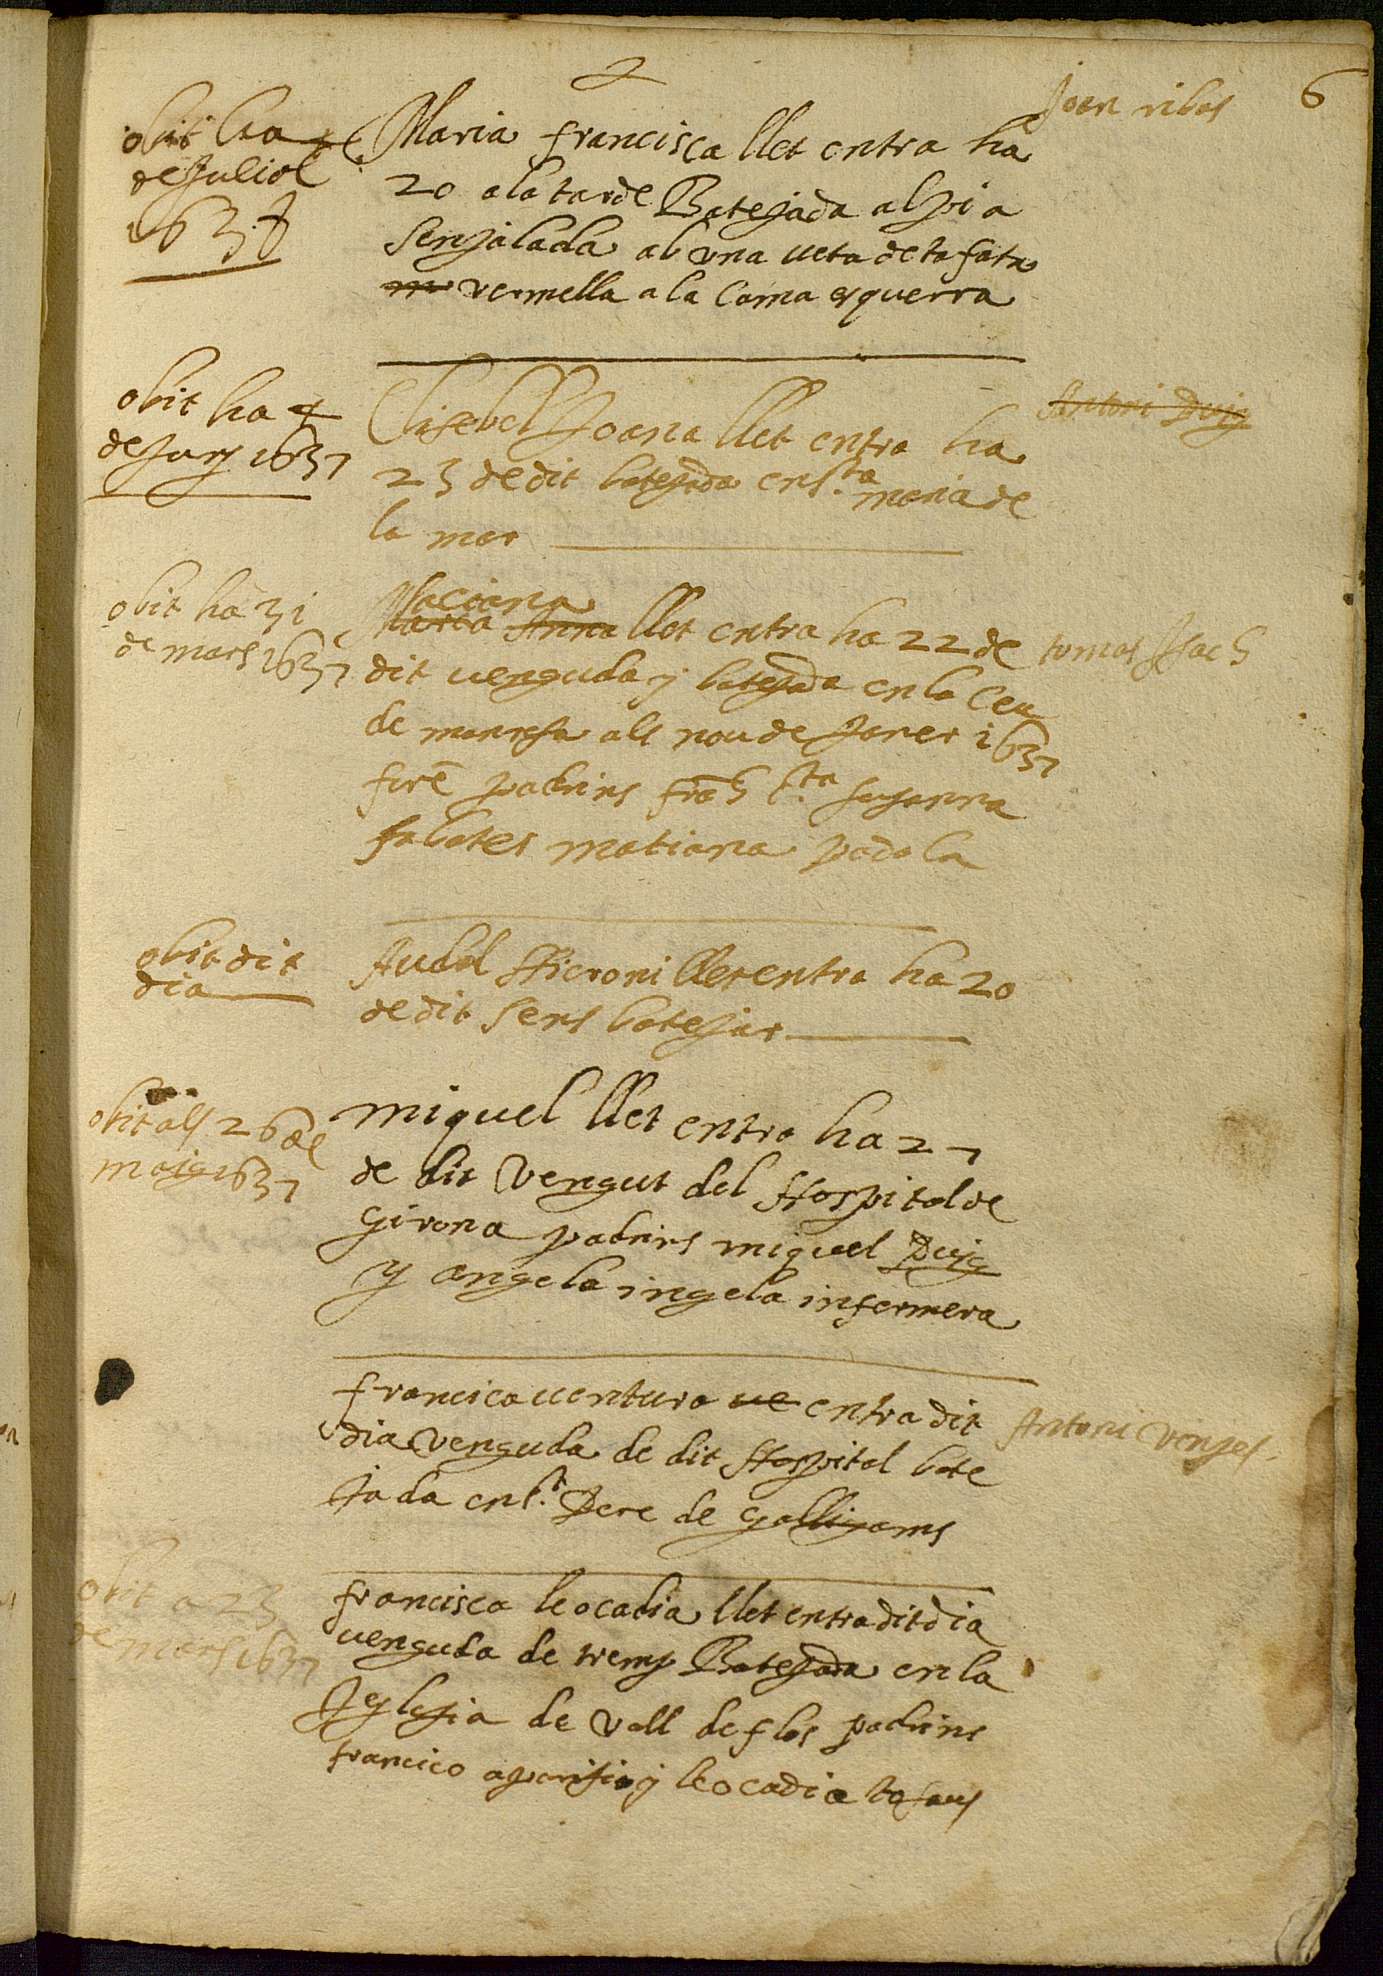 Joan ribas 6
obit ha 4
de Juliol
1637
Maria francisca llet entra ha
20 a la tarde Batejada al pi a
senyalada ab una veta de tafata
vermella a la cama esquerra
obit ha 4
de Juny 1637
Elisebel Joana llet entra ha
Antoni Puig
23 de dit batejada en s.ta maria de
la mar
obit ha 31
de mars 1637
Maciana
Maria Anna llet entra ha 22 de
tomas Isach
dit venguda y batejada en la seu
de manresa als nou de Janer 1637
fabates matiana padola
obit dit
dia
Hieroni llet entra ha 20
de dit sens batejar
obit als 26 de
maig 1637
miquel llet entra ha 27
de dit vengut del Hospital de
Girona padrins miquel Puig
y angela ingela infermera
francica ventura ve entra dit
Antoni
dia venguda de dit Hospital bate
jada en s.t Pere de galligans
obit a 23
de mars 1637
francisca leocadia llet entra dit dia
venguda de tremp Batejada en la
Iglesia de vall de flos padrins
francico aparisi y leocadia